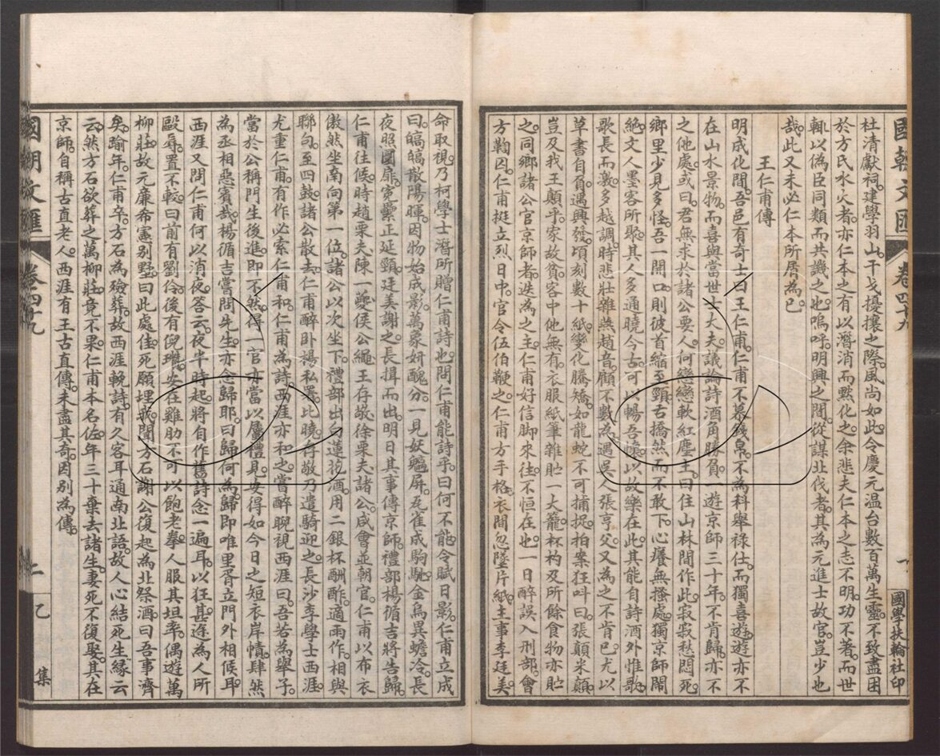 國朝文匯 卷四十九 一 國學扶輪社印
杜清獻祠。建學羽山。干戈擾攘之際。風尚如此。今慶元溫台數百萬生靈。不致盡困
於方氏水火者。亦仁本之有以潛消而默化之。余悲夫仁本之志不明。功不著。而世
輒以偽臣同類而共譏之也。嗚呼。明興之間。從謀北伐者。其為元進士故官。豈少也
哉。此又未必仁本所屑為已。
王仁甫傳
明成化間。吾邑有奇士。曰王仁甫。仁甫不慕錢帛。不為科舉祿仕。而獨喜遊。遊亦不
在山水景物。而喜與當世士大夫議論詩酒角勝負。遊京師三十年。不肯歸。亦不
之他處。或曰。君無求於諸公要人。何戀戀軟紅塵土。曰。住山林間作此寂寂愁悶死。
鄉里少見多怪。吾一開口。則彼首縮至頸。舌撟然而不敢下。心癢無搔處。獨京師鬧
絕。文人墨客所聚。其人多通曉今古。可以暢吾懷。以故樂在此。其能自詩酒外惟歌。
歌長而激。多越調。時悲壯雜燕趙音。顧不數為。遇吳人張亨父又為之不肯已。尤以
草書自負。遇興發。頃刻數十紙。變化騰矯如龍蛇不可捕捉。拍案狂叫曰。張顛米顛。
豈及我王顛乎。家故貧。客中他無有。衣服紙筆雜貯一大籠。杯杓及所餘食物亦貯
之。同鄉諸公官京師者。迭為之主。仁甫好信腳來往。不恒在。一日醉。誤入刑部。會
方鞫囚。仁甫挺立烈日中。官令伍伯鞭之。仁甫方手格。衣間忽墜片紙。主事李廷美
命取視。乃柯學士潛所贈仁甫詩也。問仁甫能詩乎。曰何不能。令賦日影。仁甫立成
曰。皜皜散陽暉。因物始成影。萬象妍醜分。一見妖魑屏。瓦雀成駒馳。金烏異蟾冷。長
夜照圜扉。寃繫正延頸。廷美謝之。長揖而出。明日其事傳京師。禮部楊循吉將告歸。
仁甫往候。時趙栗夫陳一夔侯公繩王存敬徐栗夫諸公咸會。並朝官。仁甫以布衣
傲然坐南向第一位。諸公以次坐下。禮部出白蓮花酒。用二銀杯酬酢。適雨作。相與
聯句。至四鼓。諸公散去。仁甫醉臥揚私署。比曉。存敬乃遣騎迎之。長沙李學士西涯
尤重仁甫。有作必索仁甫和。仁甫為詩西涯亦和之。嘗醉睨視西涯曰。吾若為舉子。
當於公稱門生後進。即不然。得一官亦當以屬禮見。安得如今日之短衣岸幘肆然
為丞相惡賓哉。楊循吉嘗問先生亦念歸耶。曰歸何為。歸即唯里胥立門外相候耳。
西涯又問仁甫何以消夜。答云。夜半時起將自作舊詩念一遍耳。以狂甚。迕為人所
毆辱。置不較。曰前有劉伶。後有倪瓚。安在雞肋不可以飽老拳。人服其坦率。偶遊萬
柳莊。故元廉希憲別墅。曰此處佳。死願埋我。聞方石謝公復起為北祭酒。曰吾事濟
矣。踰年。仁甫卒。方石為殮葬。故西涯輓詩有久客耳通南北語。故人心結死生緣云
云。然方石欲葬之萬柳莊。竟不果。仁甫本名佐。年三十棄去諸生。妻死不復娶。其在
京師。自稱古直老人。西涯有王古直傳。未盡其奇。因別為傳。
國朝文匯 卷四十九 二 乙集